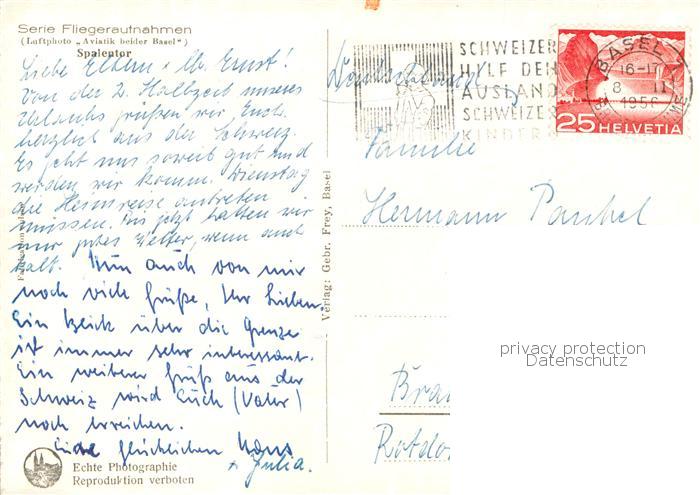 Serie Fliegeraufnahmen
(Luftphoto „Aviatik beider Basel")
Spalentor
Liebe Eltern u. lb. Ernst!
Von der 2. Halbzeit unseres
Urlaubs grüßen wir Euch
herzlich aus der Schweiz.
Es geht uns soweit gut und
werden wir komm. Dienstag
die Heimreise antreten
müssen. Bis jetzt hatten wir
nur gutes Wetter, wenn auch
kalt. Nun auch von mir
noch viele Grüße, Ihr Lieben.
Ein Blick über die Grenze
ist immer sehr interessant.
Ein weiterer Gruß aus der
Schweiz wird Euch (Vater)
noch erreichen.
Eure glücklichen Hans
+ Julia.
Echte Photographie
Reproduktion verboten
Verlag: Gebr. Frey, Basel
Deutschland
SCHWEIZER
HILF DEN
AUSLAND
SCHWEIZER
KINDERN
BASEL
16-17
8 II
1956
25 HELVETIA
Familie
Hermann
Bra
Rotdo
privacy protection
Datenschutz